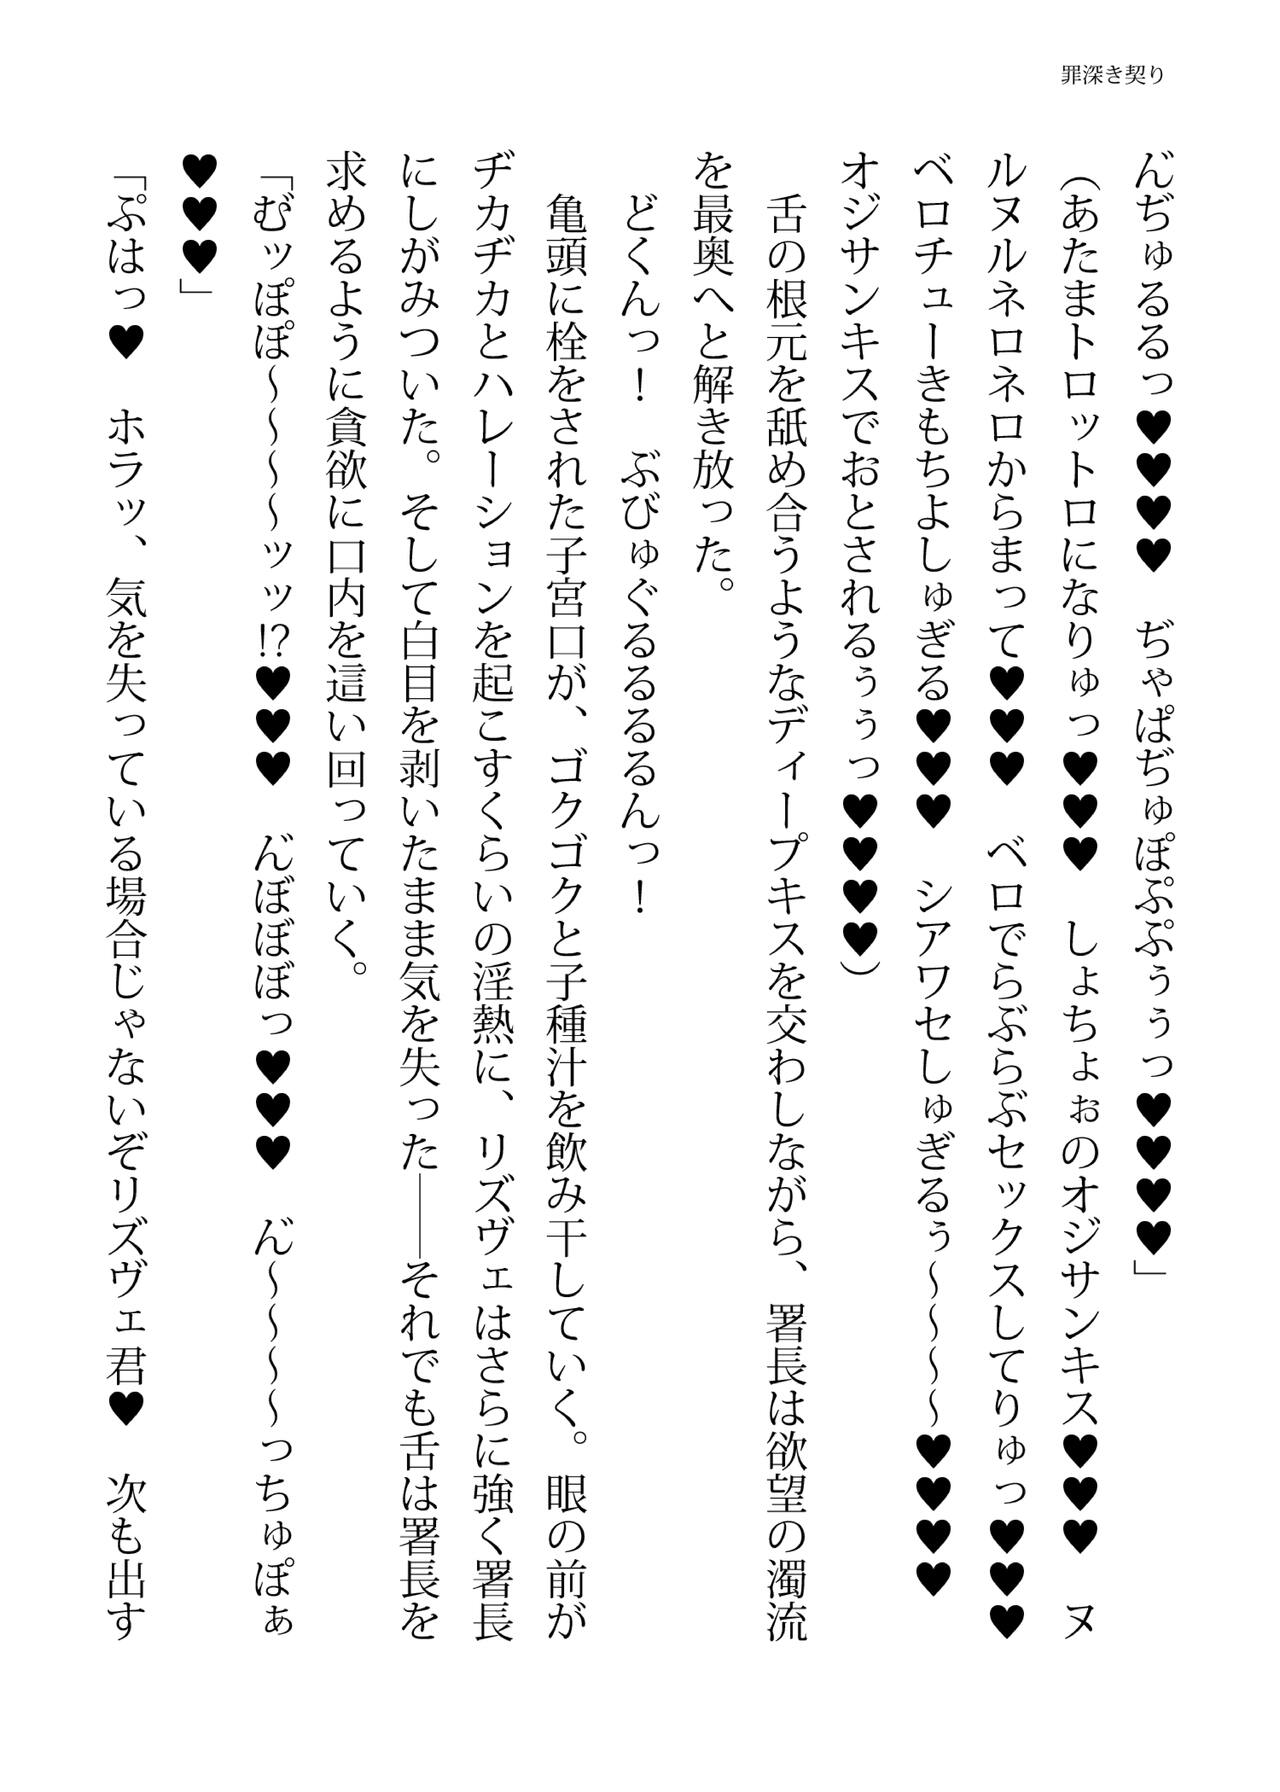 罪深き契り
ん゛ぢゅるるっ♥♥♥♥　ぢゃぱぢゅぽぷぷぅぅっ♥♥♥♥」
（あたまトロットロになりゅっ♥♥♥　しょちょぉのオジサンキス♥♥♥　ヌ
ルヌルネロネロからまって♥♥♥　ベロでらぶらぶセックスしてりゅっ♥♥♥
ベロチューきもちよしゅぎる♥♥♥　シアワセしゅぎるぅ～～～～♥♥♥♥
オジサンキスでおとされるぅぅっ♥♥♥♥）
　舌の根元を舐め合うようなディープキスを交わしながら、署長は欲望の濁流
を最奥へと解き放った。
　どくんっ！　ぶびゅぐるるるるんっ！
　亀頭に栓をされた子宮口が、ゴクゴクと子種汁を飲み干していく。眼の前が
ヂカヂカとハレーションを起こすくらいの淫熱に、リズヴェはさらに強く署長
にしがみついた。そして白目を剥いたまま気を失った――それでも舌は署長を
求めるように貪欲に口内を這い回っていく。
「む゛ッぽぽ～～～～ッッ!?♥♥♥　ん゛ぼぼぼっ♥♥♥　ん゛～～～～っちゅぽぁ
♥♥♥」
「ぷはっ♥　ホラッ、気を失っている場合じゃないぞリズヴェ君♥　次も出す